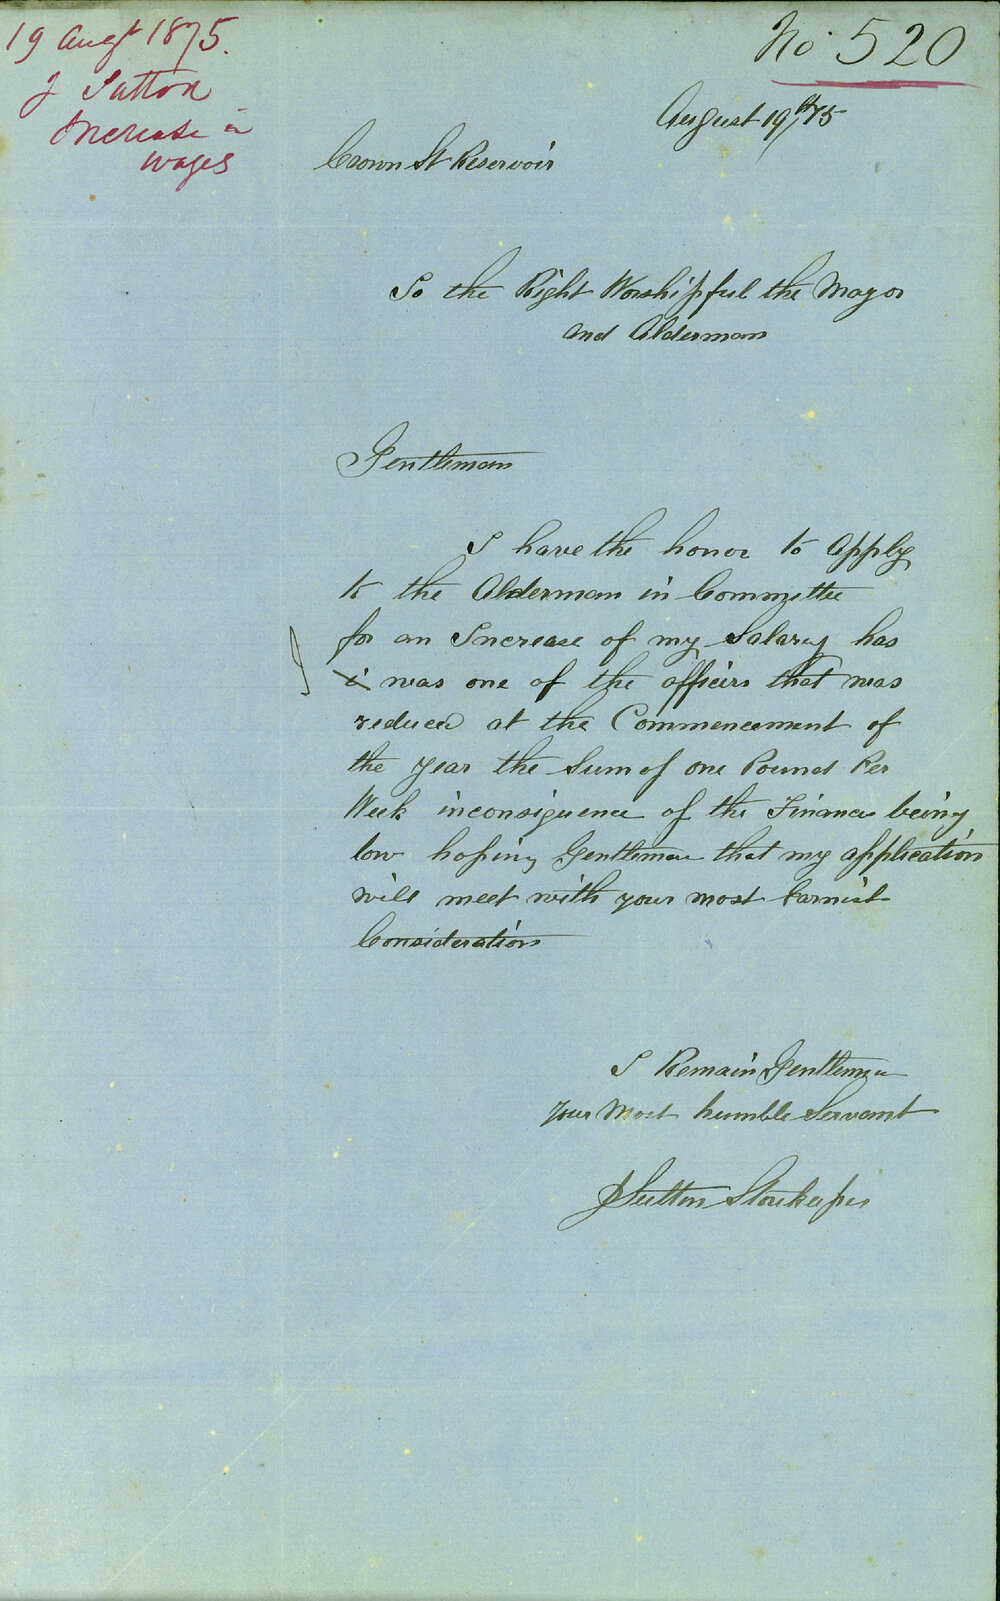 19 Augt 1875.
J Sutton
Increase in
wages
No. 520
August 19th/75
Crown St Reservoir
To the Right Worshipful the Mayor
and Alderman
Gentleman
I have the honor to Apply
to the Alderman in Committee
for an Increase of my Salary has
I i was one of the officers that was
reduced at the Commencement of
the year the Sum of one Pound Per
Week inconsiquence of the Finances being
low hoping Gentleman that my application
will meet with your most Earnist
Consideration
I Remain Gentleman
Your Most humble Servant
J Sutton Storekeeper